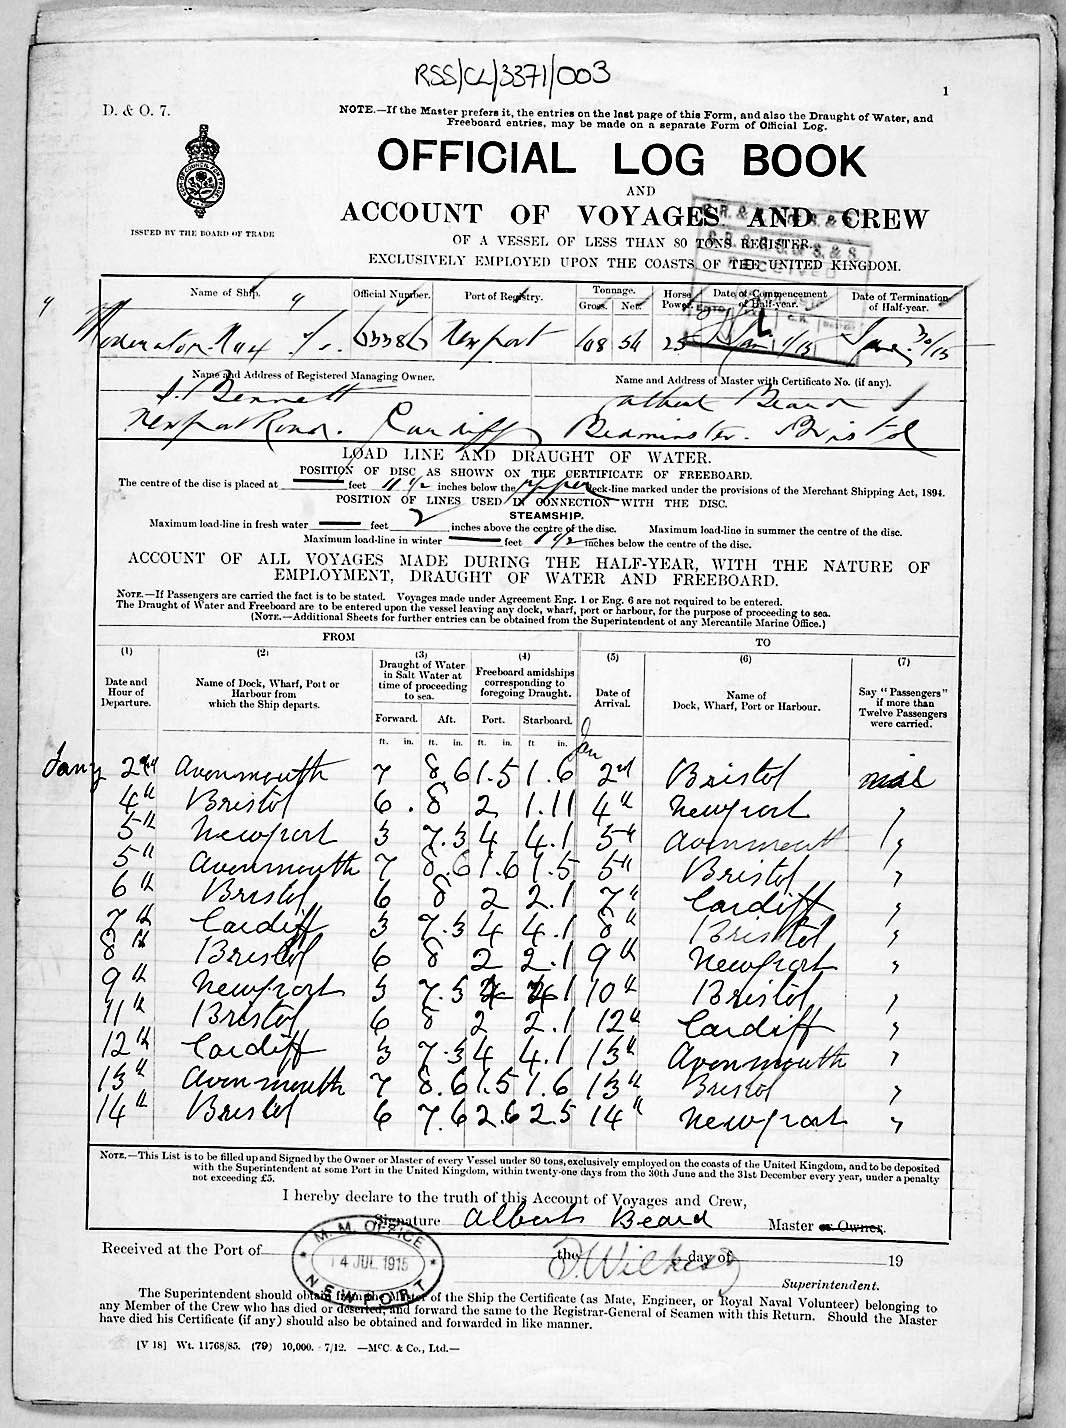 RSS/CL/3371/003
1
D. & O. 7.
NOTE.—If the Master prefers it, the entries on the last page of this Form, and also the Draught of Water, and
Freeboard entries, may be made on a separate Form of Official Log.
OFFICIAL LOG BOOK
AND
ACCOUNT OF VOYAGES AND CREW
ISSUED BY THE BOARD OF TRADE
OF A VESSEL OF LESS THAN 80 TONS REGISTER.
EXCLUSIVELY EMPLOYED UPON THE COASTS OF THE UNITED KINGDOM.
Name of Ship. Official Number. Port of Registry. Tonnage. Gross. Net. Horse Power. Date of Commencement of Half-year. Date of Termination of Half-year.
Moderator 63386 Newport 108 54 25 Jan 1/15 June 30/15
Name and Address of Registered Managing Owner. Name and Address of Master with Certificate No. (if any).
Bennett Albert Beard
Newport Road. Cardiff Bedminster. Bristol
LOAD LINE AND DRAUGHT OF WATER.
POSITION OF DISC AS SHOWN ON THE CERTIFICATE OF FREEBOARD.
The centre of the disc is placed at — feet 11 1/2 inches below the upper deck-line marked under the provisions of the Merchant Shipping Act, 1894.
POSITION OF LINES USED IN CONNECTION WITH THE DISC.
STEAMSHIP.
Maximum load-line in fresh water — feet 2 inches above the centre of the disc. Maximum load-line in summer the centre of the disc.
Maximum load-line in winter — feet 1 1/2 inches below the centre of the disc.
ACCOUNT OF ALL VOYAGES MADE DURING THE HALF-YEAR, WITH THE NATURE OF
EMPLOYMENT, DRAUGHT OF WATER AND FREEBOARD.
NOTE.—If Passengers are carried the fact is to be stated. Voyages made under Agreement Eng. 1 or Eng. 6 are not required to be entered.
The Draught of Water and Freeboard are to be entered upon the vessel leaving any dock, wharf, port or harbour, for the purpose of proceeding to sea.
(NOTE.—Additional Sheets for further entries can be obtained from the Superintendent of any Mercantile Marine Office.)
FROM TO
(1) (2) (3) (4) (5) (6) (7)
Date and Hour of Departure. Name of Dock, Wharf, Port or Harbour from which the Ship departs. Draught of Water in Salt Water at time of proceeding to sea. Freeboard amidships corresponding to foregoing Draught. Date of Arrival. Name of Dock, Wharf, Port or Harbour. Say "Passengers" if more than Twelve Passengers were carried.
Forward. Aft. Port. Starboard.
ft. in. ft. in. ft. in. ft in. Jan
Jany 2nd Avonmouth 7 8.6 1.5 1.6 2nd Bristol nil
4th Bristol 6. 8 2 1.11 4th Newport "
5th Newport 3 7.3 4 4.1 5th Avonmouth "
5th Avonmouth 7 8.6 1.6 1.5 5th Bristol "
6th Bristol 6 8 2 2.1 7th Cardiff "
7th Cardiff 3 7.3 4 4.1 8th Bristol "
8th Bristol 6 8 2 2.1 9th Newport "
9th Newport 3 7.3 4 4.1 10th Bristol "
11th Bristol 6 8 2 2.1 12th Cardiff "
12th Cardiff 3 7.3 4 4.1 13th Avonmouth "
13th Avonmouth 7 8.6 1.5 1.6 13th Bristol "
14th Bristol 6 7.6 2.6 2.5 14th Newport "
NOTE.—This List is to be filled up and Signed by the Owner or Master of every Vessel under 80 tons, exclusively employed on the coasts of the United Kingdom, and to be deposited
with the Superintendent at some Port in the United Kingdom, within twenty-one days from the 30th June and the 31st December every year, under a penalty
not exceeding £5.
I hereby declare to the truth of this Account of Voyages and Crew,
Signature Albert Beard Master or Owner.
Received at the Port of the day of 19
M. M. OFFICE
14 JUL 1915
NEWPORT
Wilkes
Superintendent.
The Superintendent should obtain from the Master of the Ship the Certificate (as Mate, Engineer, or Royal Naval Volunteer) belonging to
any Member of the Crew who has died or deserted, and forward the same to the Registrar-General of Seamen with this Return. Should the Master
have died his Certificate (if any) should also be obtained and forwarded in like manner.
[V 18] Wt. 11768/85. (79) 10,000. 7/12. —McC. & Co., Ltd.—